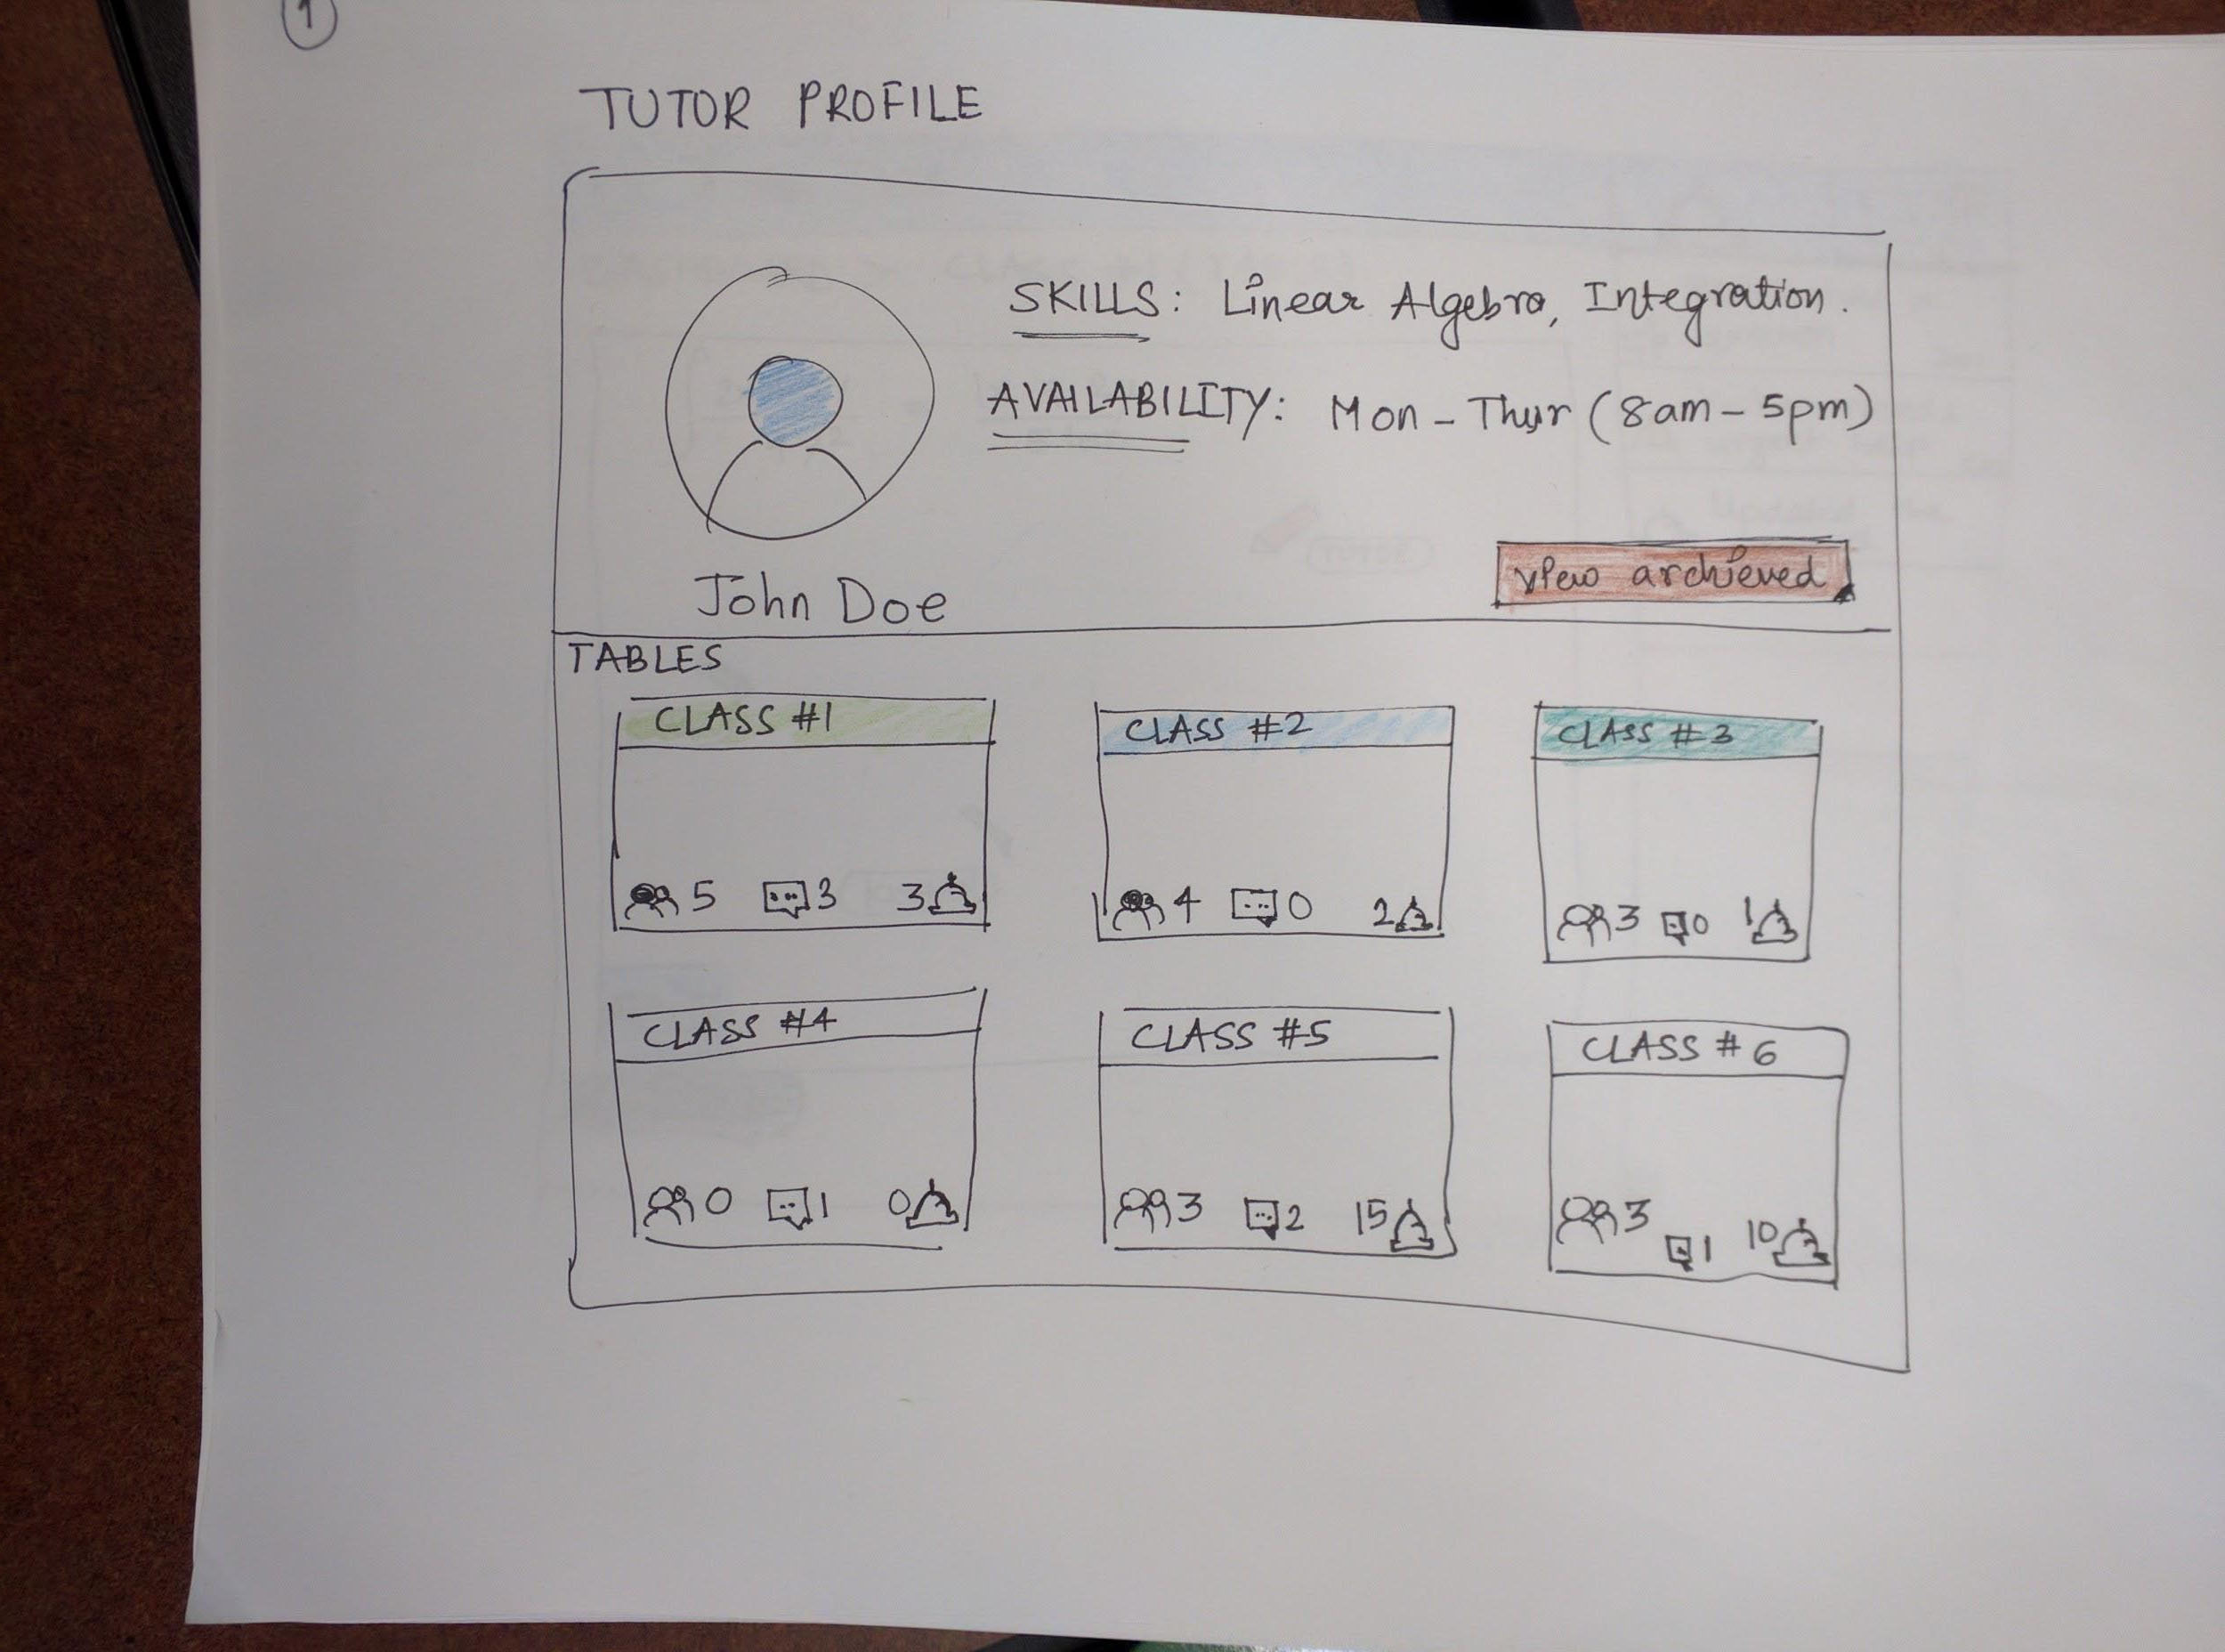 1
TUTOR PROFILE
SKILLS: Linear Algebra, Integration.
AVAILABILITY: Mon - Thur (8am - 5pm)
John Doe
view archieved
TABLES
CLASS #1
5 3 3
CLASS #2
4 0 2
CLASS #3
3 0 1
CLASS #4
0 1 0
CLASS #5
3 2 15
CLASS #6
3 1 10